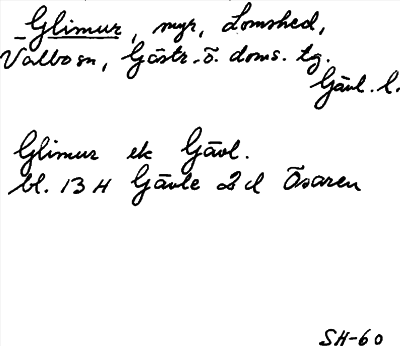 Glimur, myr, Lomshed,
Valbo sn, Gästr. ö. doms. tg.
Gävl. l.
Glimur ek Gävl.
bl. 13 H Gävle 2 d Ösaren
SH-60